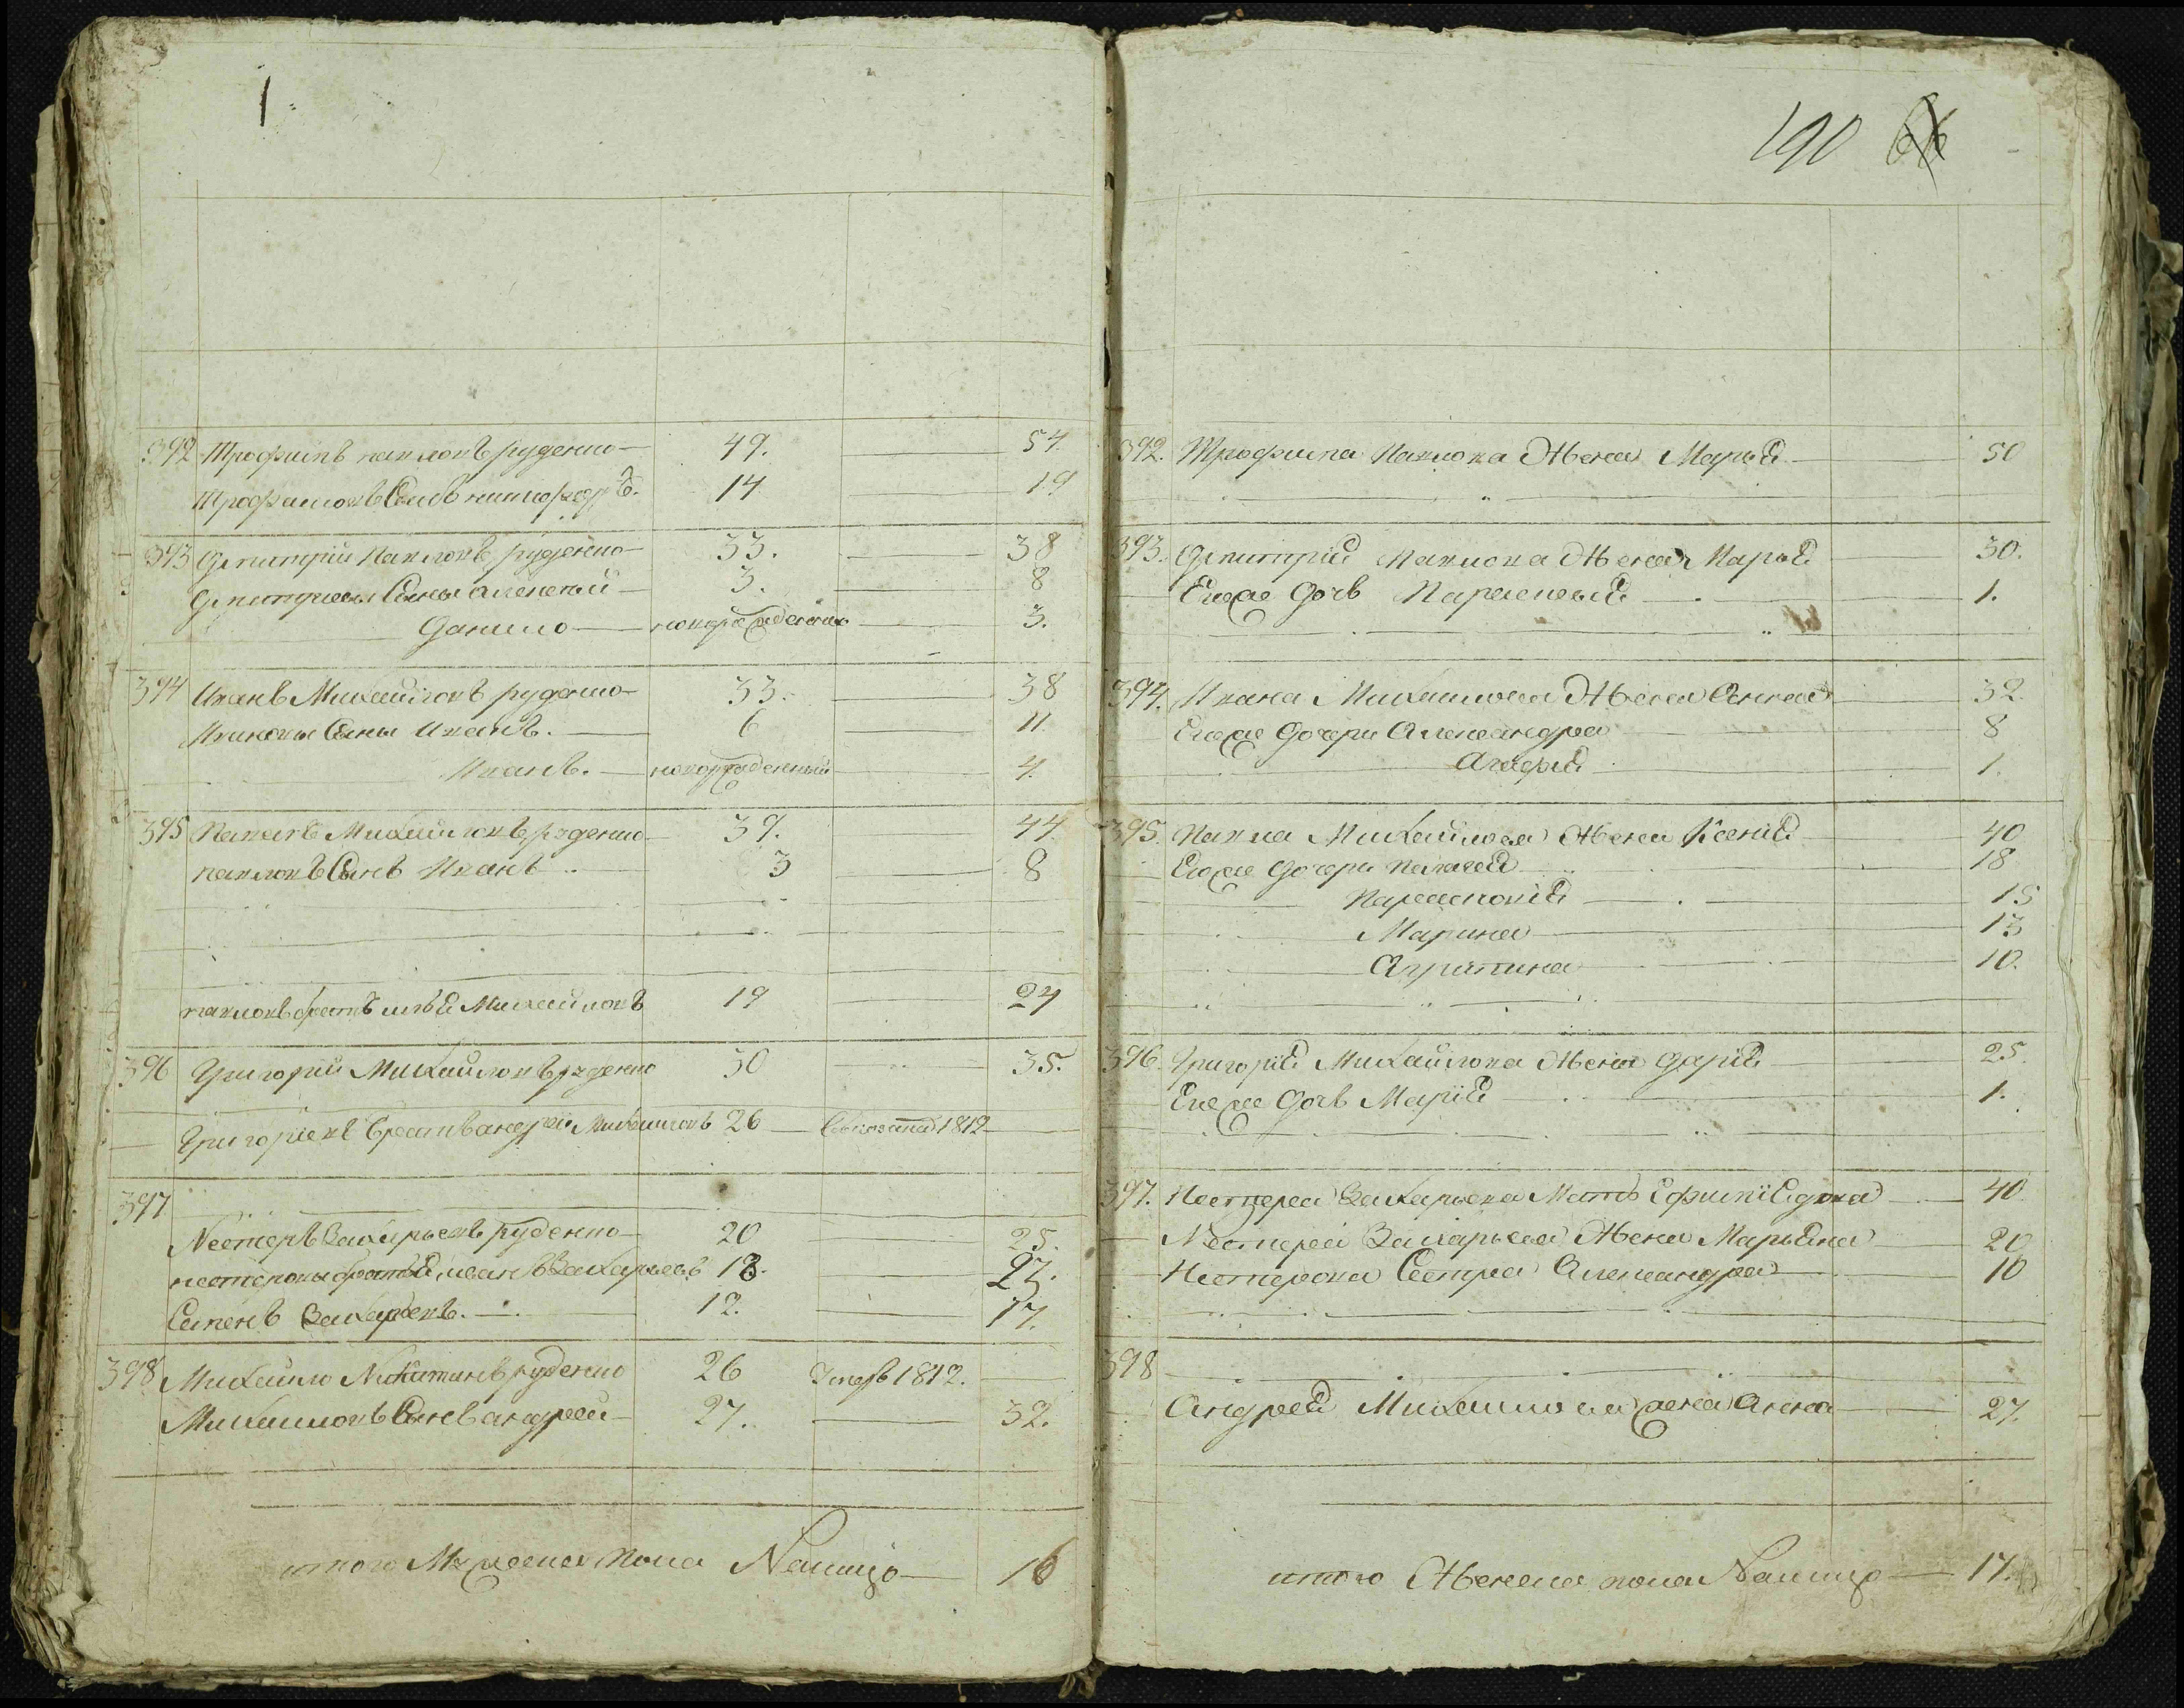 1
392 Трофимъ павловъ руденко 49. 54
Трофимовъ Сынъ никифоръ 14 19
393 Дмитрий Павловъ руденко 33. 38
Дмитриевы Сыны алексѣй 3. 8
Данило новорожденный 3.
394 Иванъ Михайловъ руденко 33. 38
Ивановы Сыны Иванъ. 6 11.
Иванъ. новорожденный 4.
395 Павелъ Михайловъ руденко 39. 44.
павловъ Сынъ Иванъ 3 8
павловъ братъ Михайловъ 19 24
396 Григорий Михайловъ руденко 30 35.
Григориевъ братъ андрей Михайловъ 26 1812
397
Нестеръ Захарьевъ руденко 20 25.
нестеровы братья иванъ Захарьевъ 18. 23.
Семенъ Захарьевъ. 12. 17.
398 Михайло Никитинъ руденко 26 Умеръ 1812.
Михайловъ Сынъ андрей 27. 32.
итого Мужеска пола Налицо 16
190 66
392. Трофима Павлова Жена Марья 50
393. Дмитрия Павлова Жена Марья 30.
Ихже дочь Парасковья 1.
394. Ивана Михайлова Жена Анна 32.
Ихже дочери Александра 8
Агафия 1.
395. Павла Михайлова жена Ксения 40
Ихже дочери Пелагея 18
Парасковия 15
Марина 13
Агрипина 10.
396. Григория Михайлова жена дария 25.
Ихже дочь Мария 1.
397. Нестера Захарьева Мать Ефимия вдова 40
Нестера Захарьева Жена Марьяна 20
Нестерова Сестра Александра 10
398
Андрея Михайлова жена Анна 27.
итого Женска пола Налицо 17.